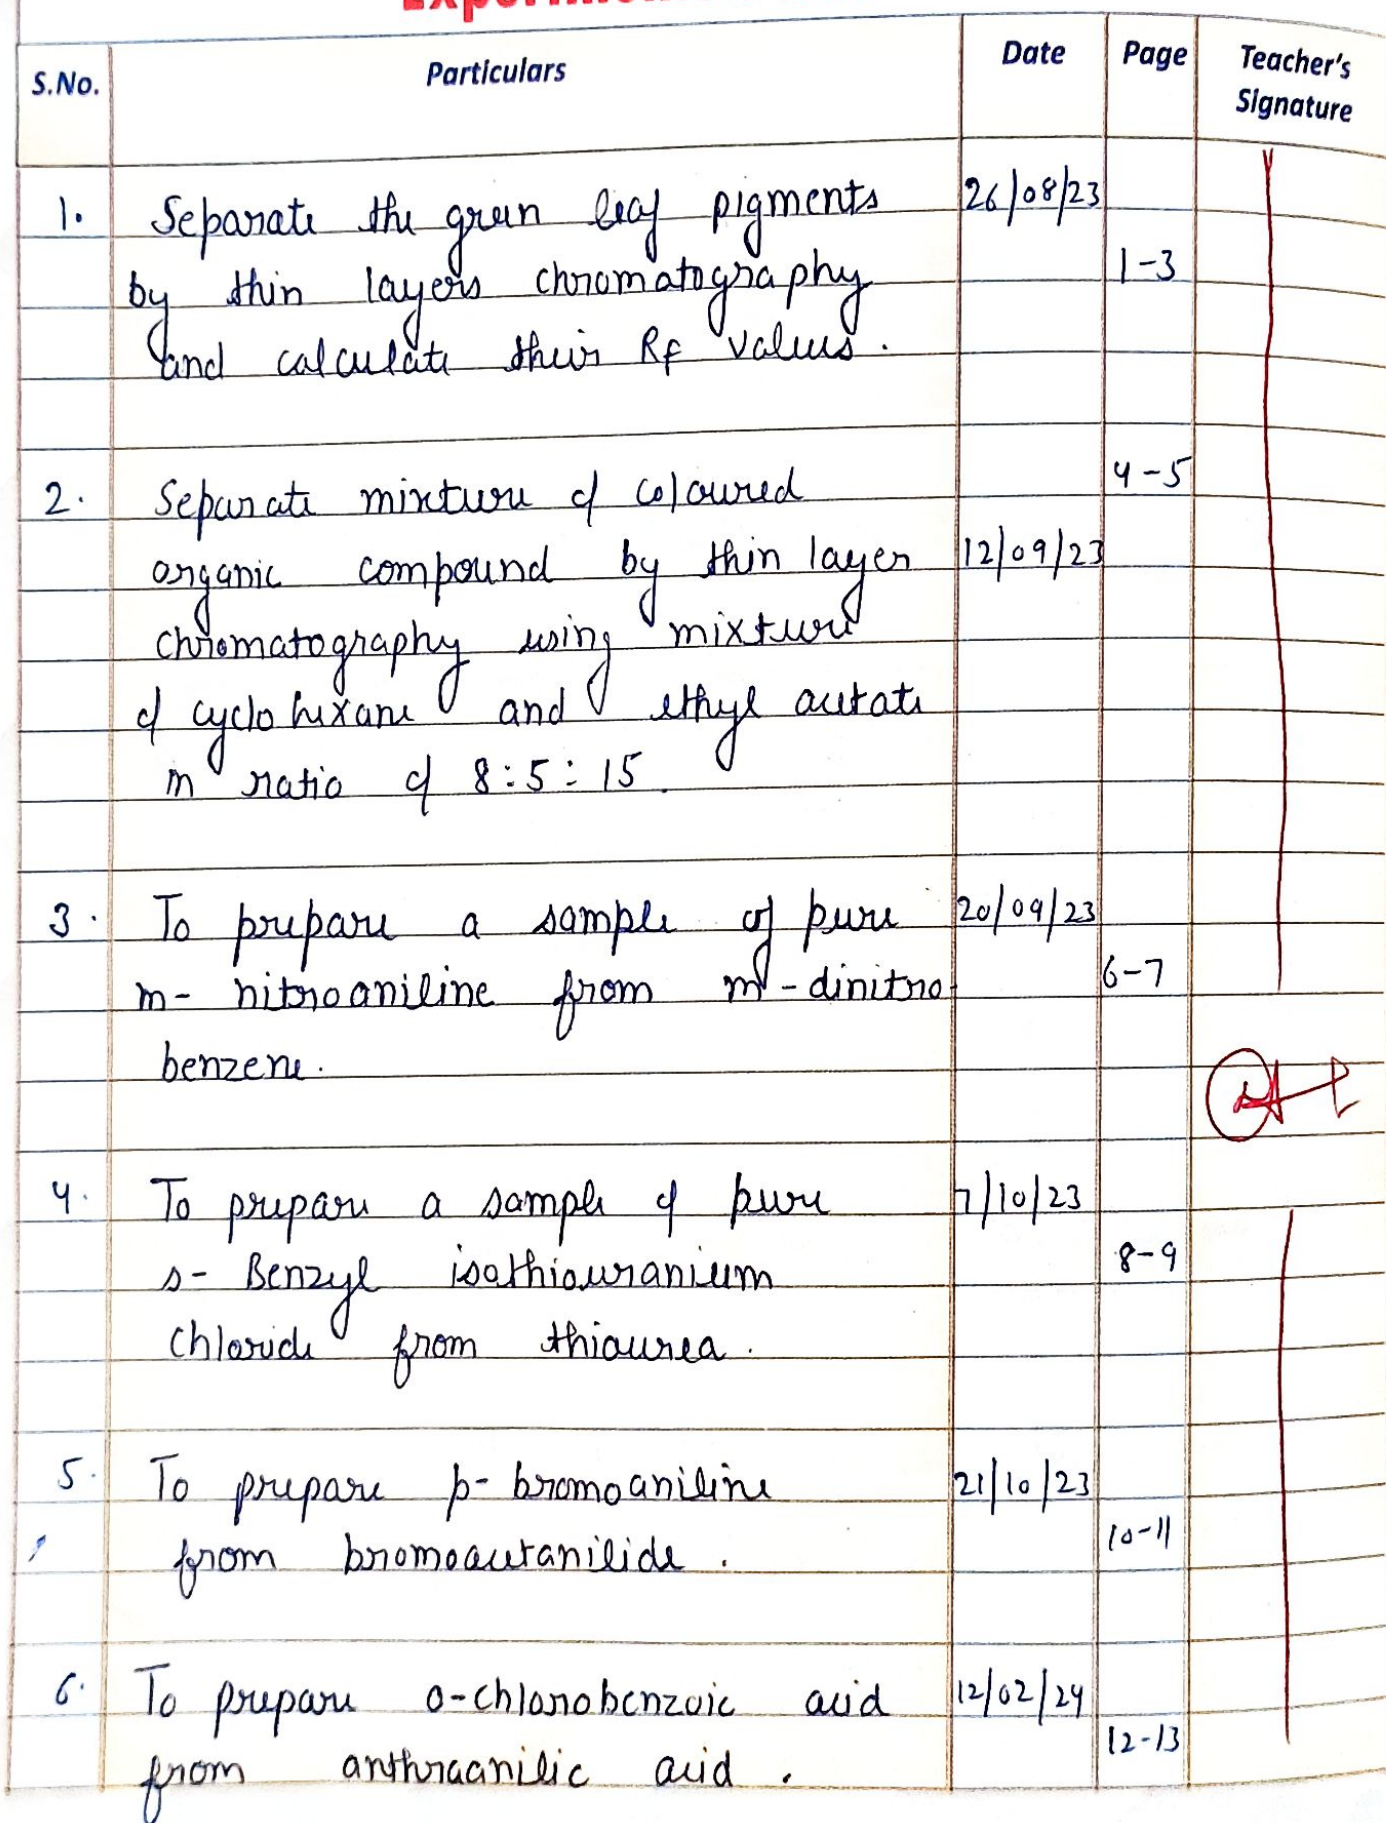 S.No. Particulars Date Page Teacher's Signature
1. Separate the green leaf pigments 26/08/23
by thin layers chromatography 1-3
and calculate their Rf values.
4-5
2. Separate mixture of coloured
organic compound by thin layer 12/09/23
chromatography using mixture
of cyclo hexane and ethyl acetate
in ratio of 8:5:15.
3. To prepare a sample of pure 20/09/23
m- nitroaniline from m-dinitro 6-7
benzene.
4. To prepare a sample of pure 7/10/23
s- Benzyl isothiouranium 8-9
chloride from thiourea.
5. To prepare p- bromoaniline 21/10/23
from bromoacetanilide. 10-11
6. To prepare o-chlorobenzoic acid 12/02/24
from anthraanilic acid. 12-13